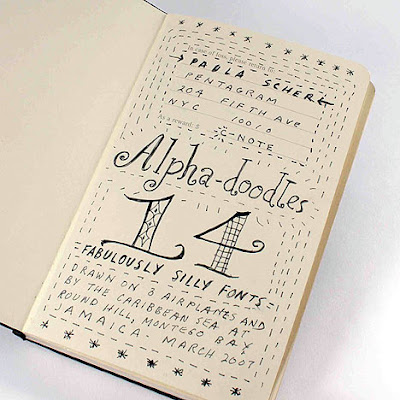 In case of loss, please return to:
PAULA SCHER
PENTAGRAM
204 FIFTH AVE
NYC 10010
As a reward: $ C-NOTE
Alpha-doodles
14
=FABULOUSLY SILLY FONTS=
DRAWN ON 3 AIRPLANES AND
BY THE CARIBBEAN SEA AT
ROUND HILL, MONTEGO BAY,
JAMAICA. MARCH 2007